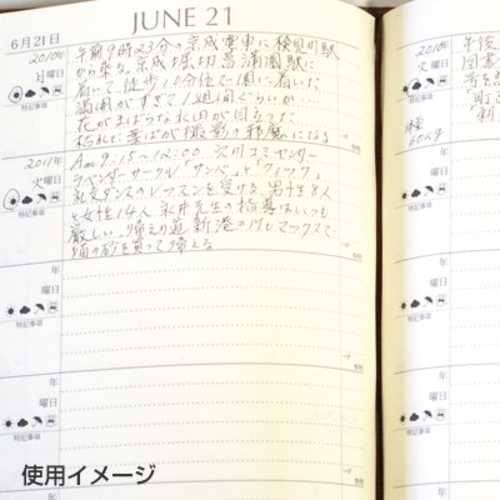 JUNE 21
6月21日
2010年
月曜日
特記事項
午前9時23分の京成電車に検見川駅
から乗る。京成堀切菖蒲園駅に
着いて徒歩10分位で園に着いた
満開がすぎて1週間ぐらいか…
花がまばらな水田が目立つた
枯れた葉ばが撮影の邪魔になる
2011年
火曜日
特記事項
Am 9:15~12:00 穴川コミセンター
ラベンダーサークル「サンバ」と「クイック」
社交ダンスのレッスンを受ける。男性8人
と女性14人 永井先生の指導はいつも
厳しい。帰えり道 新港の
猫の砂を買って帰える
年
曜日
特記事項
年
曜日
特記事項
2010年
火曜日
午後
図書
使用イメージ